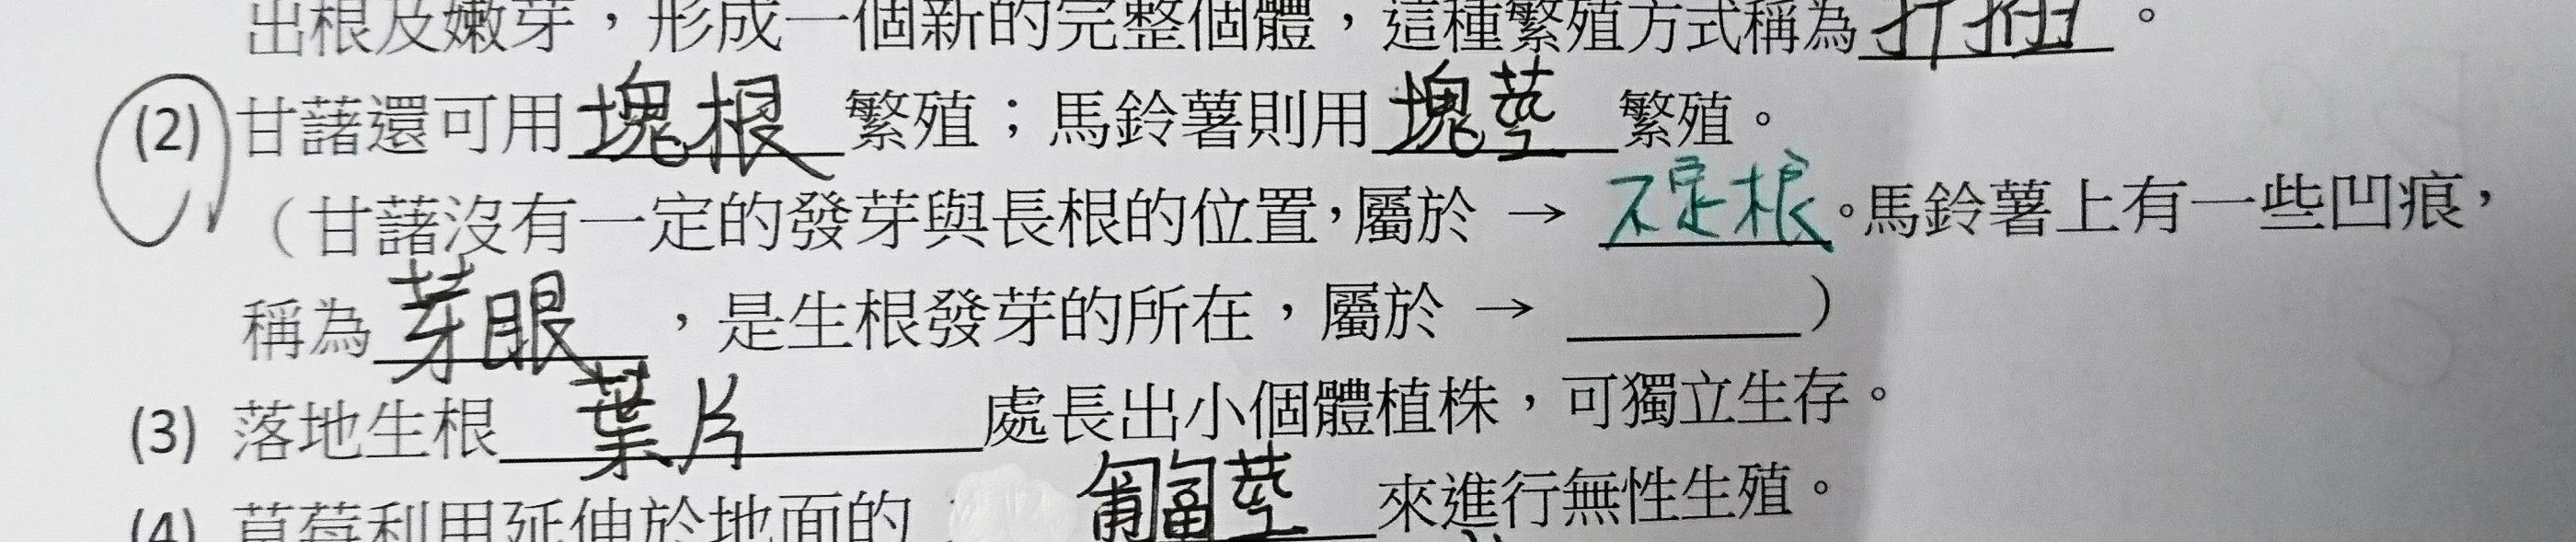 出根及嫩芽，形成一個新的完整個體，這種繁殖方式稱為扦插。
(2) 甘藷還可用塊根繁殖；馬鈴薯則用塊莖繁殖。
（甘藷沒有一定的發芽與長根的位置，屬於 → 不定根。馬鈴薯上有一些凹痕，
稱為芽眼，是生根發芽的所在，屬於 → ______）
(3) 落地生根葉片處長出小個體植株，可獨立生存。
(4) 草莓利用延伸於地面的匍匐莖來進行無性生殖。